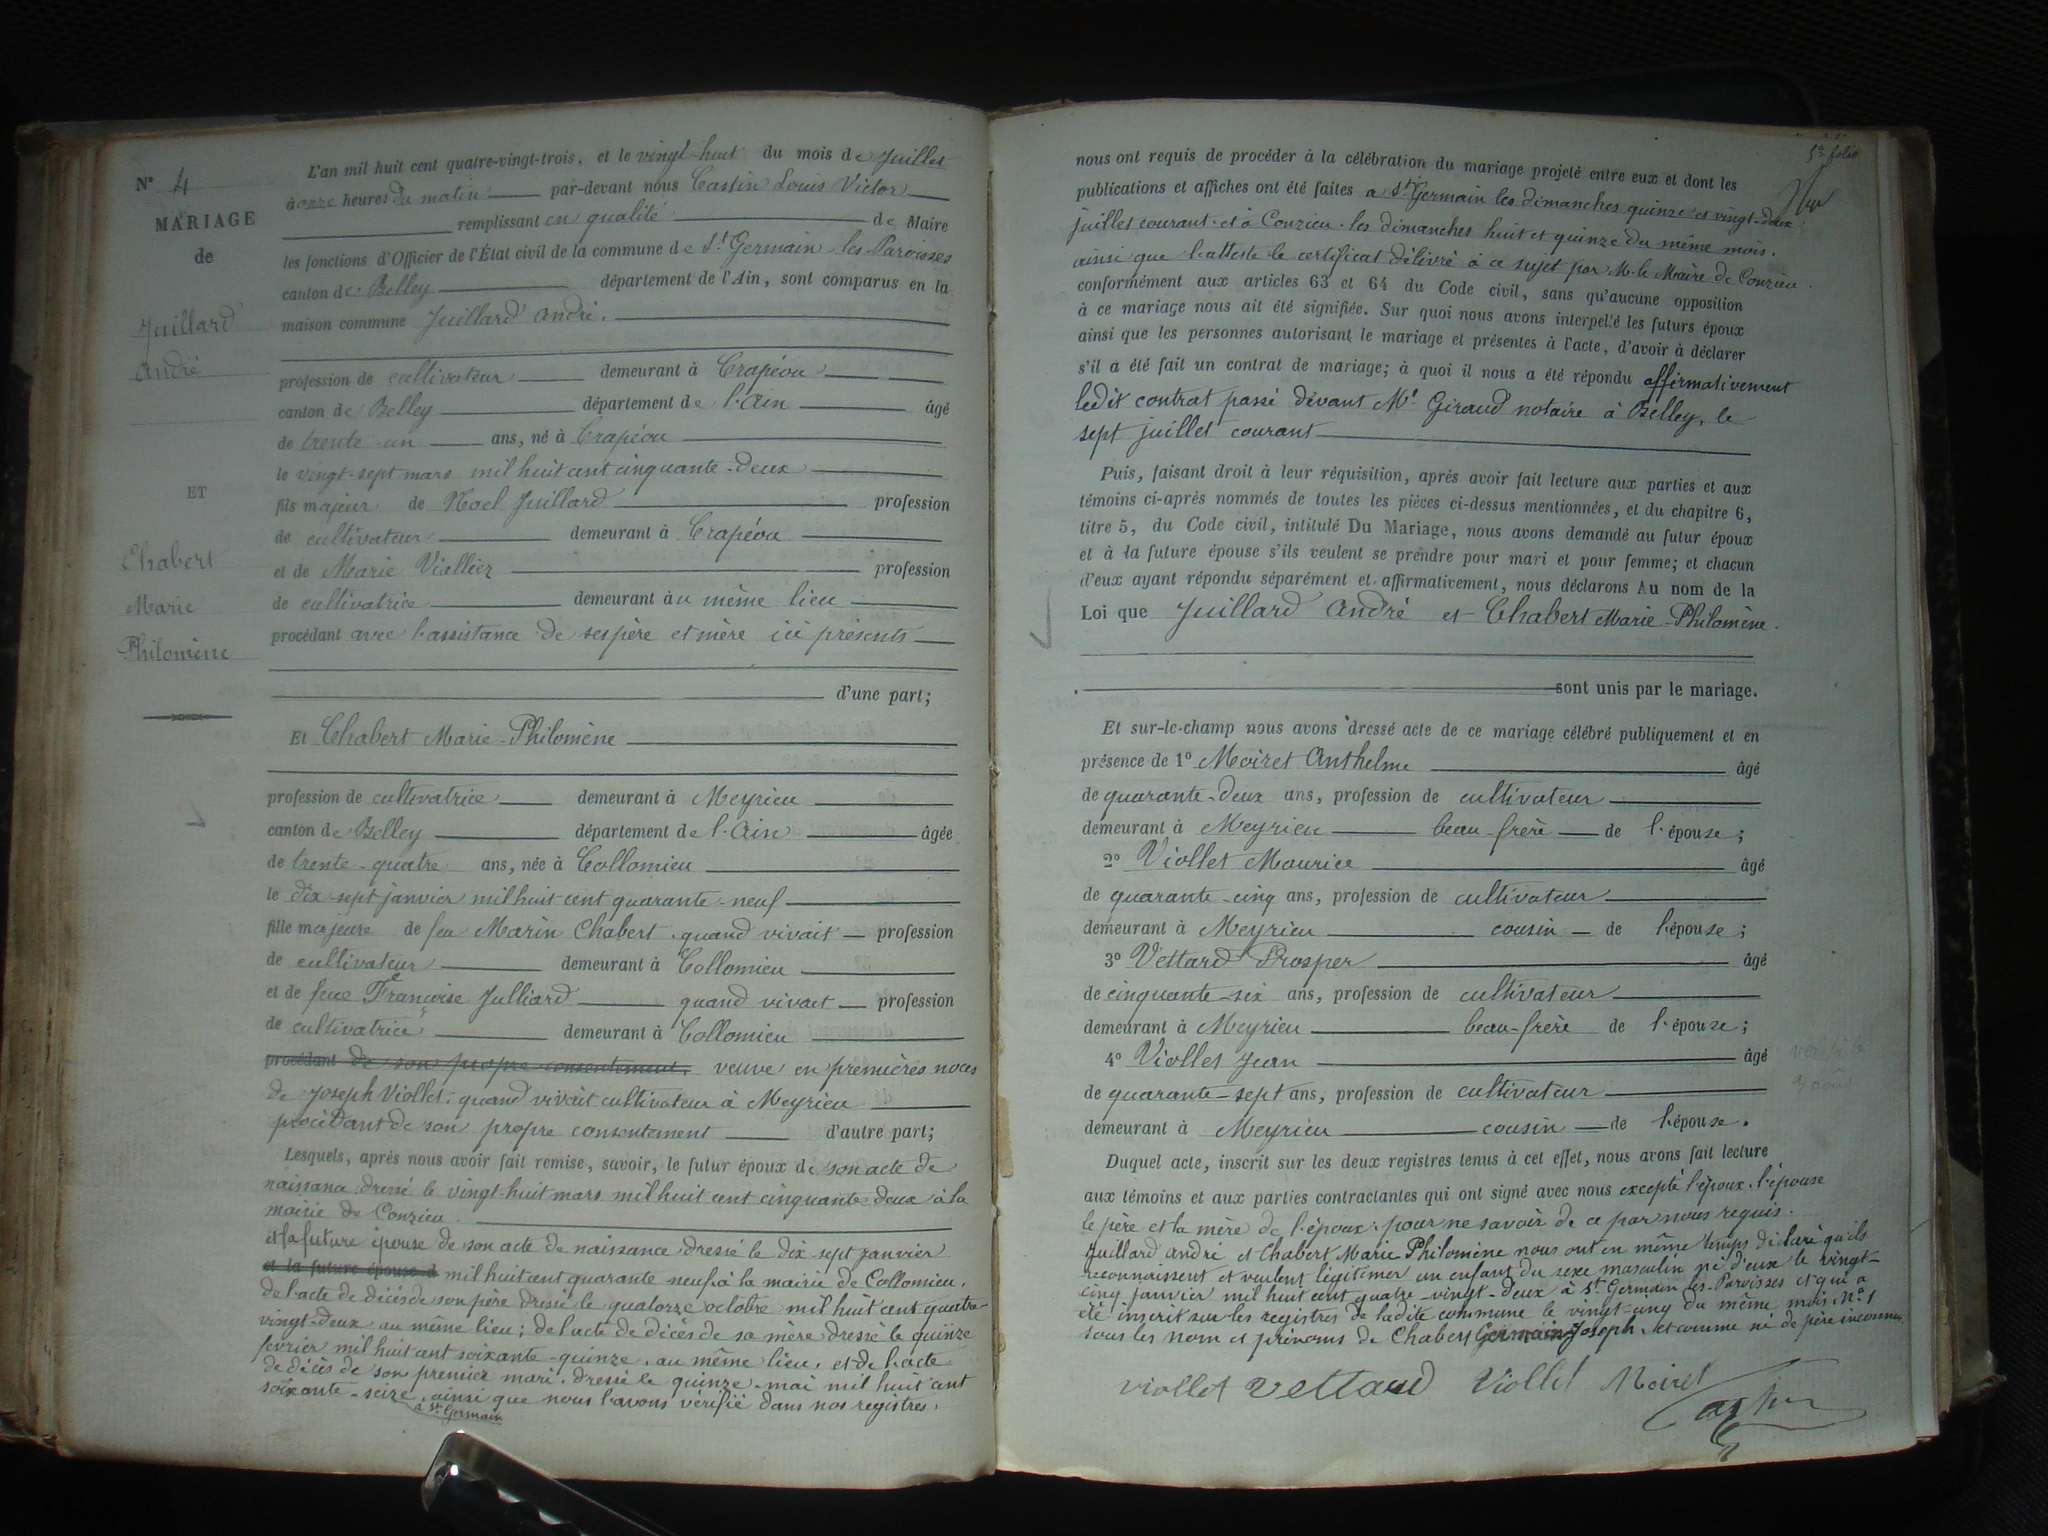 N° 4
MARIAGE
de
Juillard
André
ET
Chabert
Marie
Philomène
L'an mil huit cent quatre-vingt-trois, et le vingt-huit du mois de Juillet
à onze heures du matin par-devant nous Castin Louis Victor
remplissant en qualité de Maire
les fonctions d'Officier de l'État civil de la commune de St Germain-les-Paroisses
canton de Belley département de l'Ain, sont comparus en la
maison commune Juillard André.
profession de cultivateur demeurant à Crapéou
canton de Belley département de l'Ain âgé
de trente-un ans, né à Crapéou
le vingt-sept mars mil huit cent cinquante-deux
fils majeur de Noel Juillard profession
de cultivateur demeurant à Crapéou
et de Marie Viallier profession
de cultivatrice demeurant au même lieu
procédant avec l'assistance de ses père et mère ici présents
d'une part;
Et Chabert Marie-Philomène
profession de cultivatrice demeurant à Meyrieu
canton de Belley département de l'Ain âgée
de trente-quatre ans, née à Collomieu
le dix-sept janvier mil huit cent quarante-neuf
fille majeure de feu Marin Chabert, quand vivait profession
de cultivateur demeurant à Collomieu
et de feue Françoise Julliard quand vivait profession
de cultivatrice demeurant à Collomieu
procédant de son propre consentement, veuve en premières noces
de Joseph Viollet, quand vivait cultivateur à Meyrieu
procédant de son propre consentement d'autre part;
Lesquels, après nous avoir fait remise, savoir, le futur époux de son acte de
naissance dressé le vingt-huit mars mil huit cent cinquante-deux à la
mairie de Conzieu.
et la future épouse de son acte de naissance dressé le dix-sept janvier
et la future épouse d mil huit cent quarante neuf à la mairie de Collomieu,
de l'acte de décès de son père dressé le quatorze octobre mil huit cent quatre-
vingt-deux au même lieu; de l'acte de décès de sa mère dressé le quinze
février mil huit cent soixante-quinze, au même lieu, et de l'acte
de décès de son premier mari, dressé le quinze mai mil huit cent
soixante-seize, ainsi que nous l'avons vérifié dans nos registres.
à St Germain
5e folio
nous ont requis de procéder à la célébration du mariage projeté entre eux et dont les
publications et affiches ont été faites à St Germain les dimanches quinze et vingt-deux
juillet courant et à Conzieu les dimanches huit et quinze du même mois,
ainsi que l'atteste le certificat délivré à ce sujet par M. le Maire de Conzieu.
conformément aux articles 63 et 64 du Code civil, sans qu'aucune opposition
à ce mariage nous ait été signifiée. Sur quoi nous avons interpelé les futurs époux
ainsi que les personnes autorisant le mariage et présentes à l'acte, d'avoir à déclarer
s'il a été fait un contrat de mariage; à quoi il nous a été répondu affirmativement
ledit contrat passé devant Me Giraud notaire à Belley, le
sept juillet courant
Puis, faisant droit à leur réquisition, après avoir fait lecture aux parties et aux
témoins ci-après nommés de toutes les pièces ci-dessus mentionnées, et du chapitre 6,
titre 5, du Code civil, intitulé Du Mariage, nous avons demandé au futur époux
et à la future épouse s'ils veulent se prendre pour mari et pour femme; et chacun
d'eux ayant répondu séparément et affirmativement, nous déclarons Au nom de la
Loi que Juillard André et Chabert Marie-Philomène.
sont unis par le mariage.
Et sur-le-champ nous avons dressé acte de ce mariage célébré publiquement et en
présence de 1° Moiret Anthelme âgé
de quarante-deux ans, profession de cultivateur
demeurant à Meyrieu beau-frère de l'épouse;
2° Viollet Maurice âgé
de quarante-cinq ans, profession de cultivateur
demeurant à Meyrieu cousin de l'épouse;
3° Vettard Prosper âgé
de cinquante-six ans, profession de cultivateur
demeurant à Meyrieu beau-frère de l'épouse;
4° Viollet Jean âgé
de quarante-sept ans, profession de cultivateur
demeurant à Meyrieu cousin de l'épouse.
Duquel acte, inscrit sur les deux registres tenus à cet effet, nous avons fait lecture
aux témoins et aux parties contractantes qui ont signé avec nous excepté l'époux, l'épouse
le père et la mère de l'époux, pour ne savoir de ce par nous requis.
Juillard André et Chabert Marie Philomène nous ont en même temps déclaré qu'ils
reconnaissent et veulent légitimer un enfant du sexe masculin né d'eux le vingt-
cinq janvier mil huit cent quatre-vingt-deux à St Germain les-Paroisses et qui a
été inscrit sur les registres de ladite commune le vingt-cinq du même mois N° 1
sous les nom et prénoms de Chabert Germain Joseph, et comme né de père inconnu.
viollet Vettard Viollet Moiret
Castin